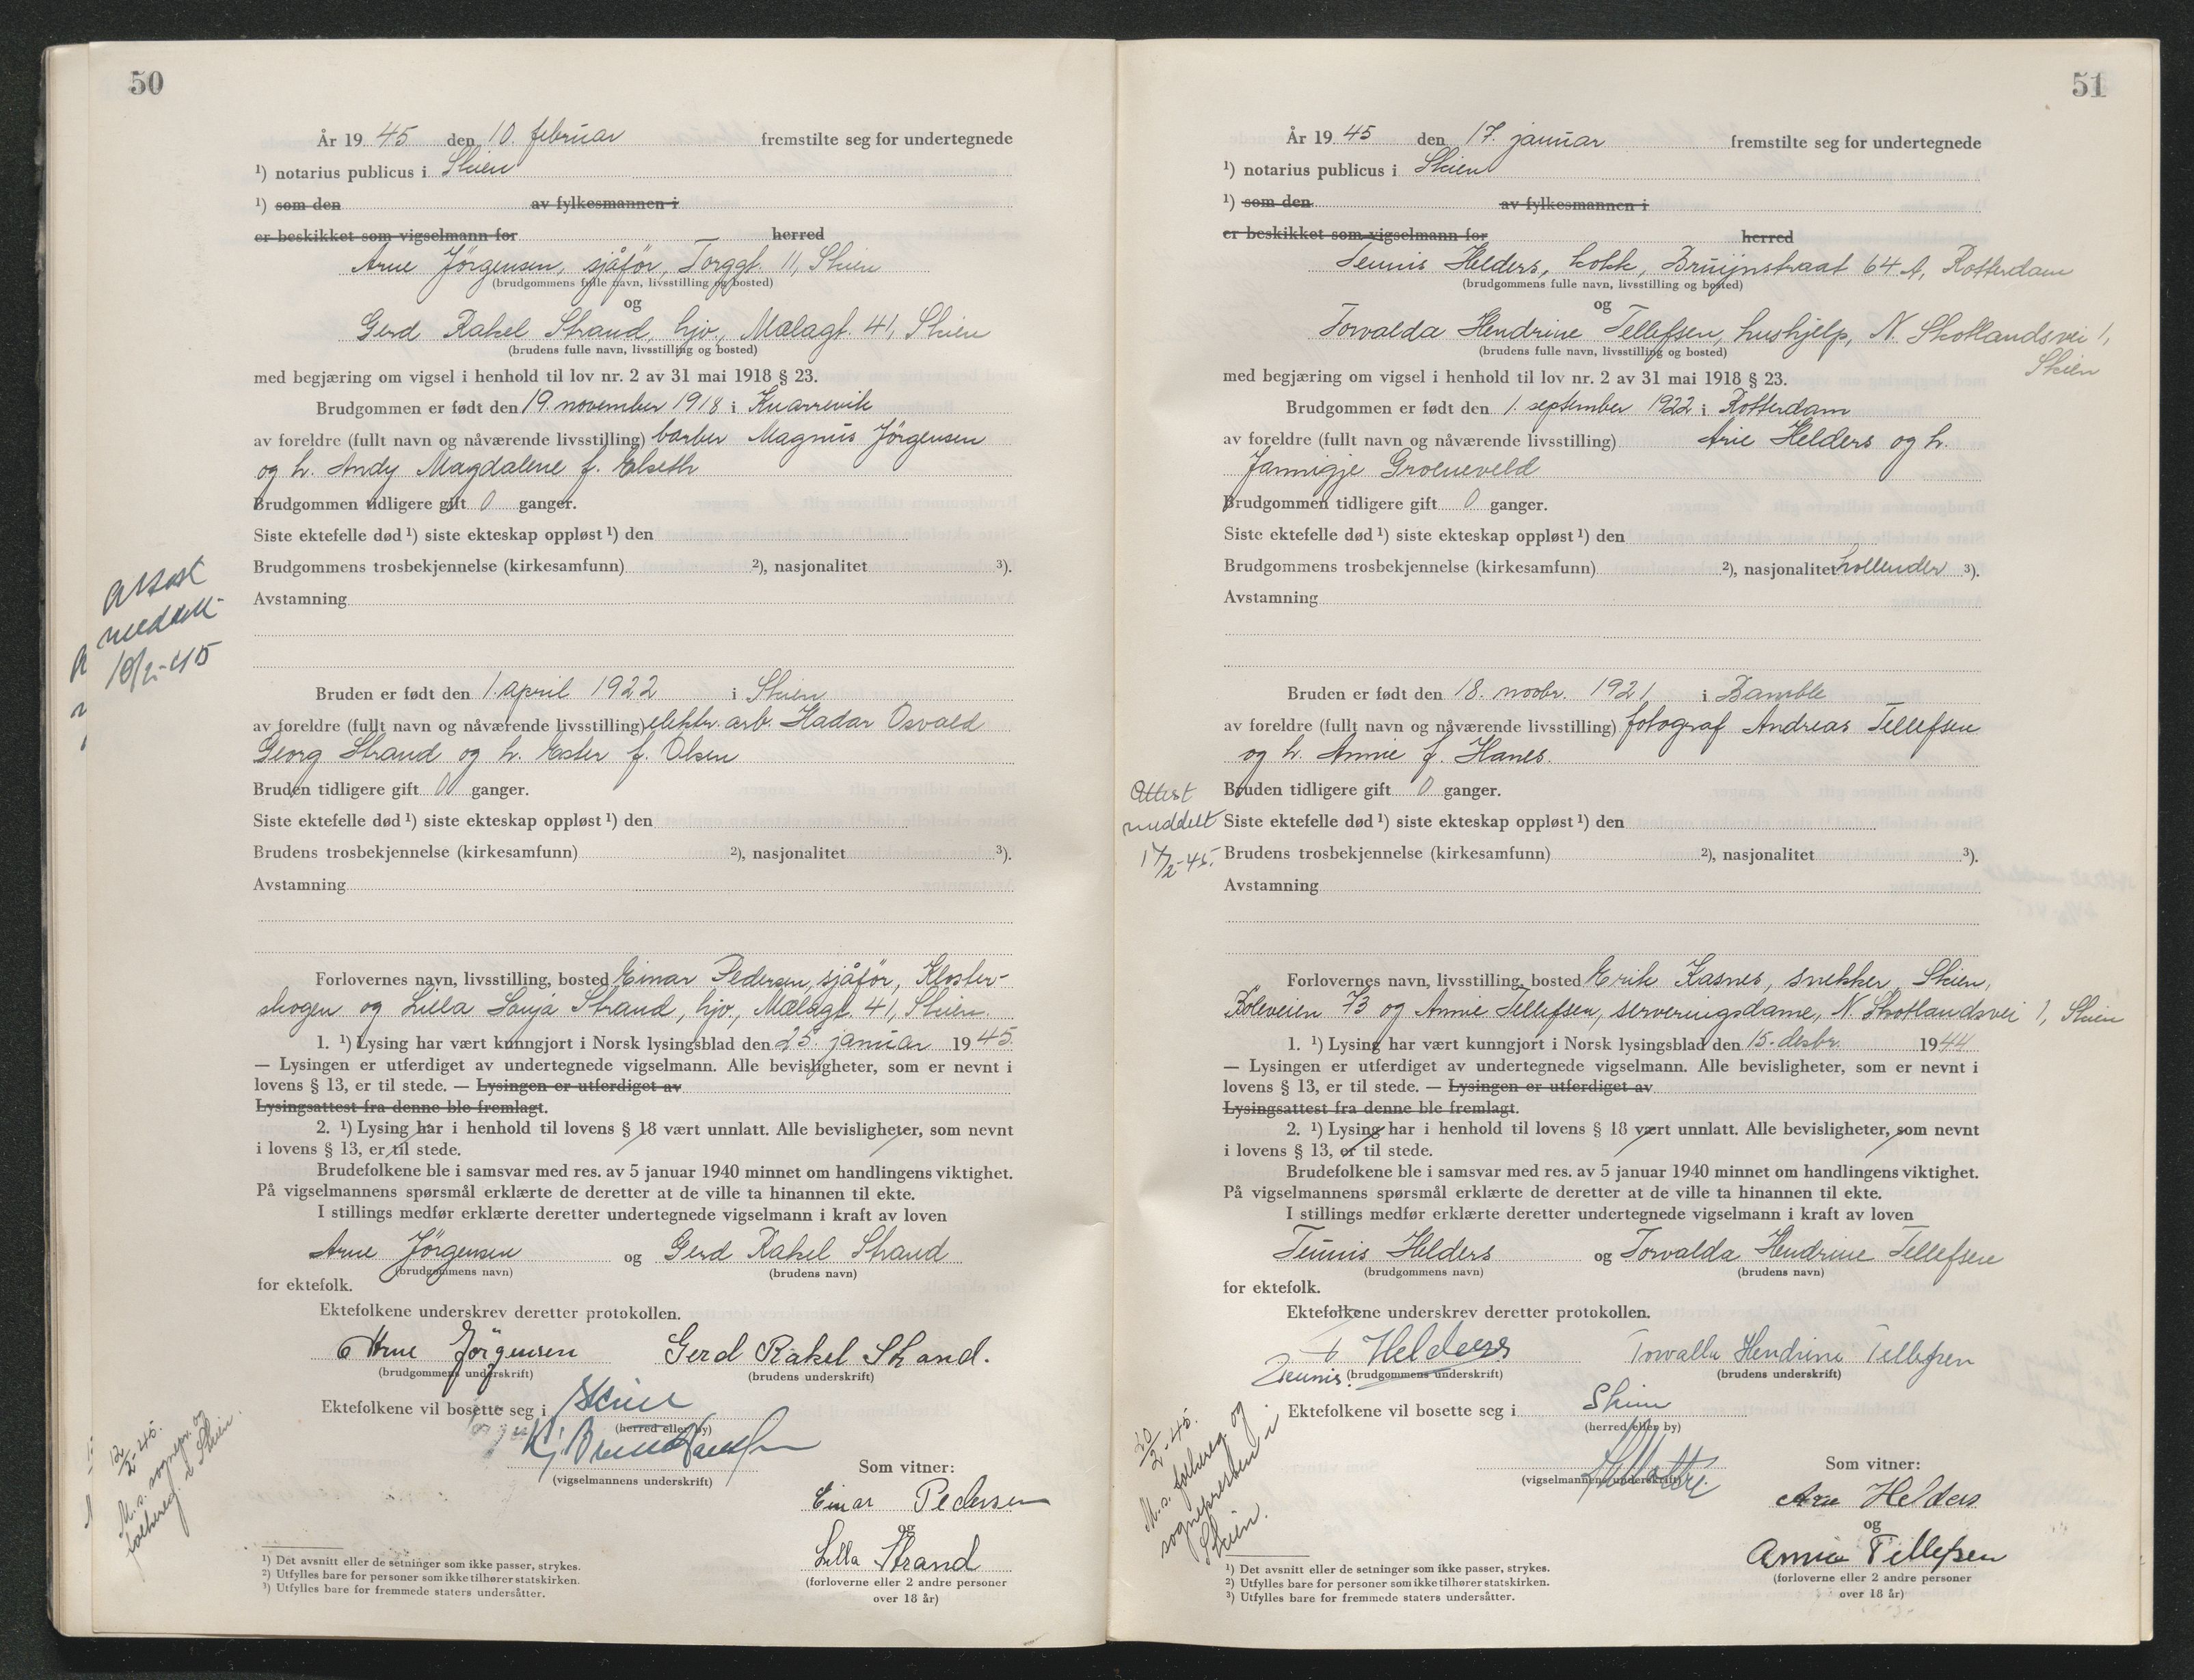 50
År 19 45 den 10. februar fremstilte seg for undertegnede
¹) notarius publicus i Skien
¹) som den av fylkesmannen i
er beskikket som vigselmann for herred
Arne Jörgensen, sjåför, Torggt. 11, Skien
(brudgommens fulle navn, livsstilling og bosted)
og
Gerd Rakel Strand, hjv., Mælagt. 41, Skien
(brudens fulle navn, livsstilling og bosted)
med begjæring om vigsel i henhold til lov nr. 2 av 31 mai 1918 § 23.
Brudgommen er født den 19. november 1918 i Knarrevik
av foreldre (fullt navn og nåværende livsstilling) barber Magnus Jörgensen
og h. Andy Magdalene f. Elseth
Brudgommen tidligere gift 0 ganger.
Siste ektefelle død ¹) siste ekteskap oppløst ¹) den
Brudgommens trosbekjennelse (kirkesamfunn) ²), nasjonalitet ³).
Avstamning
Attest
meddelt
10/2-45
Bruden er født den 1. april 1922 i Skien
av foreldre (fullt navn og nåværende livsstilling) elektr. arb. Hadar Osvald
Georg Strand og h. Ester f. Olsen
Bruden tidligere gift 0 ganger.
Siste ektefelle død ¹) siste ekteskap oppløst ¹) den
Brudens trosbekjennelse (kirkesamfunn) ²), nasjonalitet ³).
Avstamning
Forlovernes navn, livsstilling, bosted Einar Pedersen, sjåför, Kloster-
skogen og Lilla Sonja Strand, hjv., Mælagt. 41, Skien.
1. ¹) Lysing har vært kunngjort i Norsk lysingsblad den 25. januar 19 45.
— Lysingen er utferdiget av undertegnede vigselmann. Alle bevisligheter, som er nevnt i
lovens § 13, er til stede. — Lysingen er utferdiget av
Lysingsattest fra denne ble fremlagt.
2. ¹) Lysing har i henhold til lovens § 18 vært unnlatt. Alle bevisligheter, som nevnt
i lovens § 13, er til stede.
Brudefolkene ble i samsvar med res. av 5 januar 1940 minnet om handlingens viktighet.
På vigselmannens spørsmål erklærte de deretter at de ville ta hinannen til ekte.
I stillings medfør erklærte deretter undertegnede vigselmann i kraft av loven
Arne Jörgensen og Gerd Rakel Strand
(brudgommens navn) (brudens navn)
for ektefolk.
Ektefolkene underskrev deretter protokollen.
Arne Jörgensen Gerd Rakel Strand.
(brudgommens underskrift) (brudens underskrift)
Ektefolkene vil bosette seg i Skien
(herred eller by)
(vigselmannens underskrift)
Som vitner:
Einar Pedersen
og
Lilla Strand
(forloverne eller 2 andre personer
over 18 år)
12/2-45.
M. s. sognepr. og
folkereg. i Skien.
¹) Det avsnitt eller de setninger som ikke passer, strykes.
²) Utfylles bare for personer som ikke tilhører statskirken.
³) Utfylles bare for fremmede staters undersåtter.
51
År 19 45 den 17. januar fremstilte seg for undertegnede
¹) notarius publicus i Skien
¹) som den av fylkesmannen i
er beskikket som vigselmann for herred
Teunis Helders, kokk, Bruijnstraat 64 A, Rotterdam
(brudgommens fulle navn, livsstilling og bosted)
og
Torvalda Hendrine Tellefsen, hushjelp, N. Skotlandsvei 1,
Skien
(brudens fulle navn, livsstilling og bosted)
med begjæring om vigsel i henhold til lov nr. 2 av 31 mai 1918 § 23.
Brudgommen er født den 1. september 1922 i Rotterdam
av foreldre (fullt navn og nåværende livsstilling) Arie Helders og h.
Jannigje Groeneveld
Brudgommen tidligere gift 0 ganger.
Siste ektefelle død ¹) siste ekteskap oppløst ¹) den
Brudgommens trosbekjennelse (kirkesamfunn) ²), nasjonalitet hollender ³).
Avstamning
Bruden er født den 18. novbr. 1921 i Bamble
av foreldre (fullt navn og nåværende livsstilling) fotograf Andreas Tellefsen
og h. Annie f. Hanes.
Bruden tidligere gift 0 ganger.
Siste ektefelle død ¹) siste ekteskap oppløst ¹) den
Brudens trosbekjennelse (kirkesamfunn) ²), nasjonalitet ³).
Avstamning
Attest
meddelt
17/2-45.
Forlovernes navn, livsstilling, bosted Erik Kasnes, snekker, Skien,
Böleveien 73 og Annie Tellefsen, serveringsdame, N. Skotlandsvei 1, Skien
1. ¹) Lysing har vært kunngjort i Norsk lysingsblad den 15. desbr. 19 44
— Lysingen er utferdiget av undertegnede vigselmann. Alle bevisligheter, som er nevnt i
lovens § 13, er til stede. — Lysingen er utferdiget av
Lysingsattest fra denne ble fremlagt.
2. ¹) Lysing har i henhold til lovens § 18 vært unnlatt. Alle bevisligheter, som nevnt
i lovens § 13, er til stede.
Brudefolkene ble i samsvar med res. av 5 januar 1940 minnet om handlingens viktighet.
På vigselmannens spørsmål erklærte de deretter at de ville ta hinannen til ekte.
I stillings medfør erklærte deretter undertegnede vigselmann i kraft av loven
Teunis Helders og Torvalda Hendrine Tellefsen
(brudgommens navn) (brudens navn)
for ektefolk.
Ektefolkene underskrev deretter protokollen.
Helders Torvalda Hendrine Tellefsen
Teunis. (brudgommens underskrift) (brudens underskrift)
Ektefolkene vil bosette seg i Skien
(herred eller by)
(vigselmannens underskrift)
Som vitner:
Arie Helders
og
Annie Tellefsen
(forloverne eller 2 andre personer
over 18 år)
20/2-45.
M. s. folkereg. og
sognepresten i
Skien.
¹) Det avsnitt eller de setninger som ikke passer, strykes.
²) Utfylles bare for personer som ikke tilhører statskirken.
³) Utfylles bare for fremmede staters undersåtter.